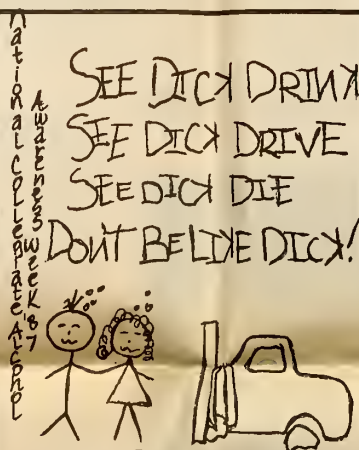 National Collegiate Alcohol
Awareness Week '87
SEE DICK DRINK
SEE DICK DRIVE
SEE DICK DIE
DON'T BE LIKE DICK!